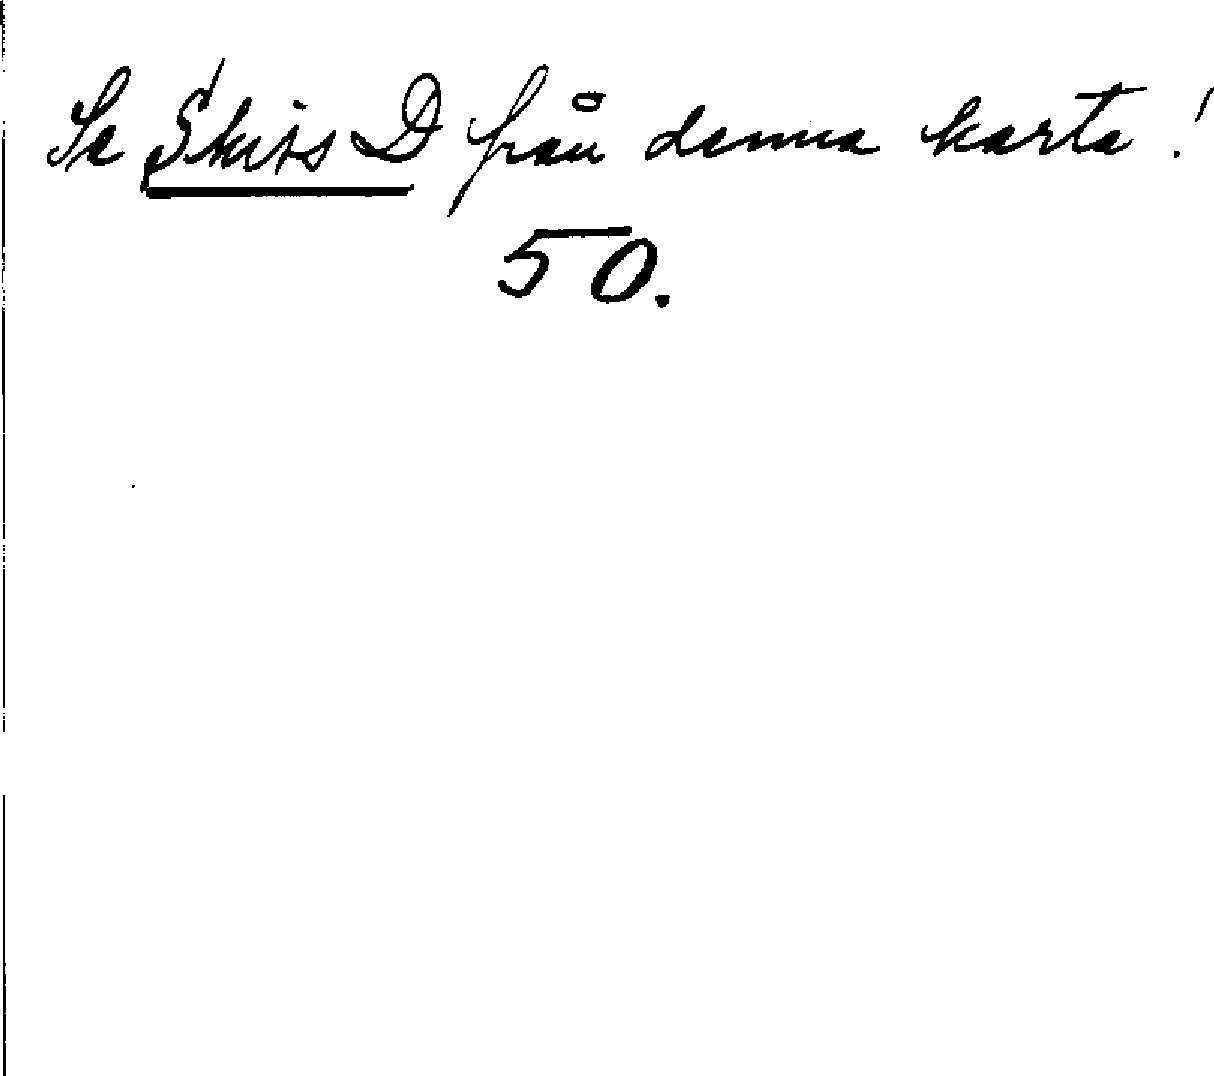 Se Skiss D från denna karta!
50.